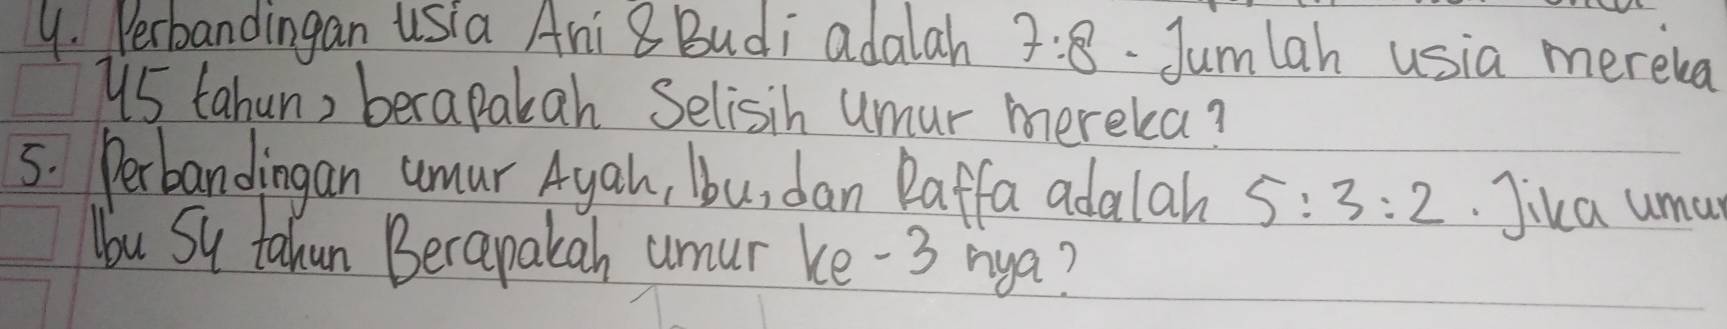 4. Perbandingan usia Ani & Budi adalah 7:8. Jumlah usia mereka
45 tahun, berapakah Selisih umur mereka?
5. Perbandingan umur Ayah, Ibu, dan Raffa adalah 5:3:2. Jika umur
Ibu 54 tahun Berapakah umur ke-3 nya?